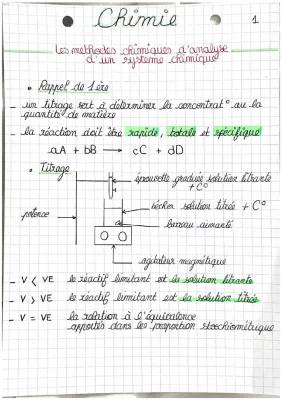 Chimie
1
Les méthodes chimiques d'analyse
d'un système chimique
• Rappel de 1ère
_ un titrage sert à déterminer la concentrat° ou la
quantité de matière
_ la réaction doit être rapide, totale et spécifique
aA + bB → cC + dD
• Titrage
éprouvette graduée solution titrante
+ C°
bécher solution titrée + C°
potence
barreau aimanté
agitateur magnétique
_ V < VE le réactif limitant est la solution titrante
_ V > VE le réactif limitant est la solution titrée
_ V = VE la solution à l'équivalence
apportés dans les proportion stoechiométrique